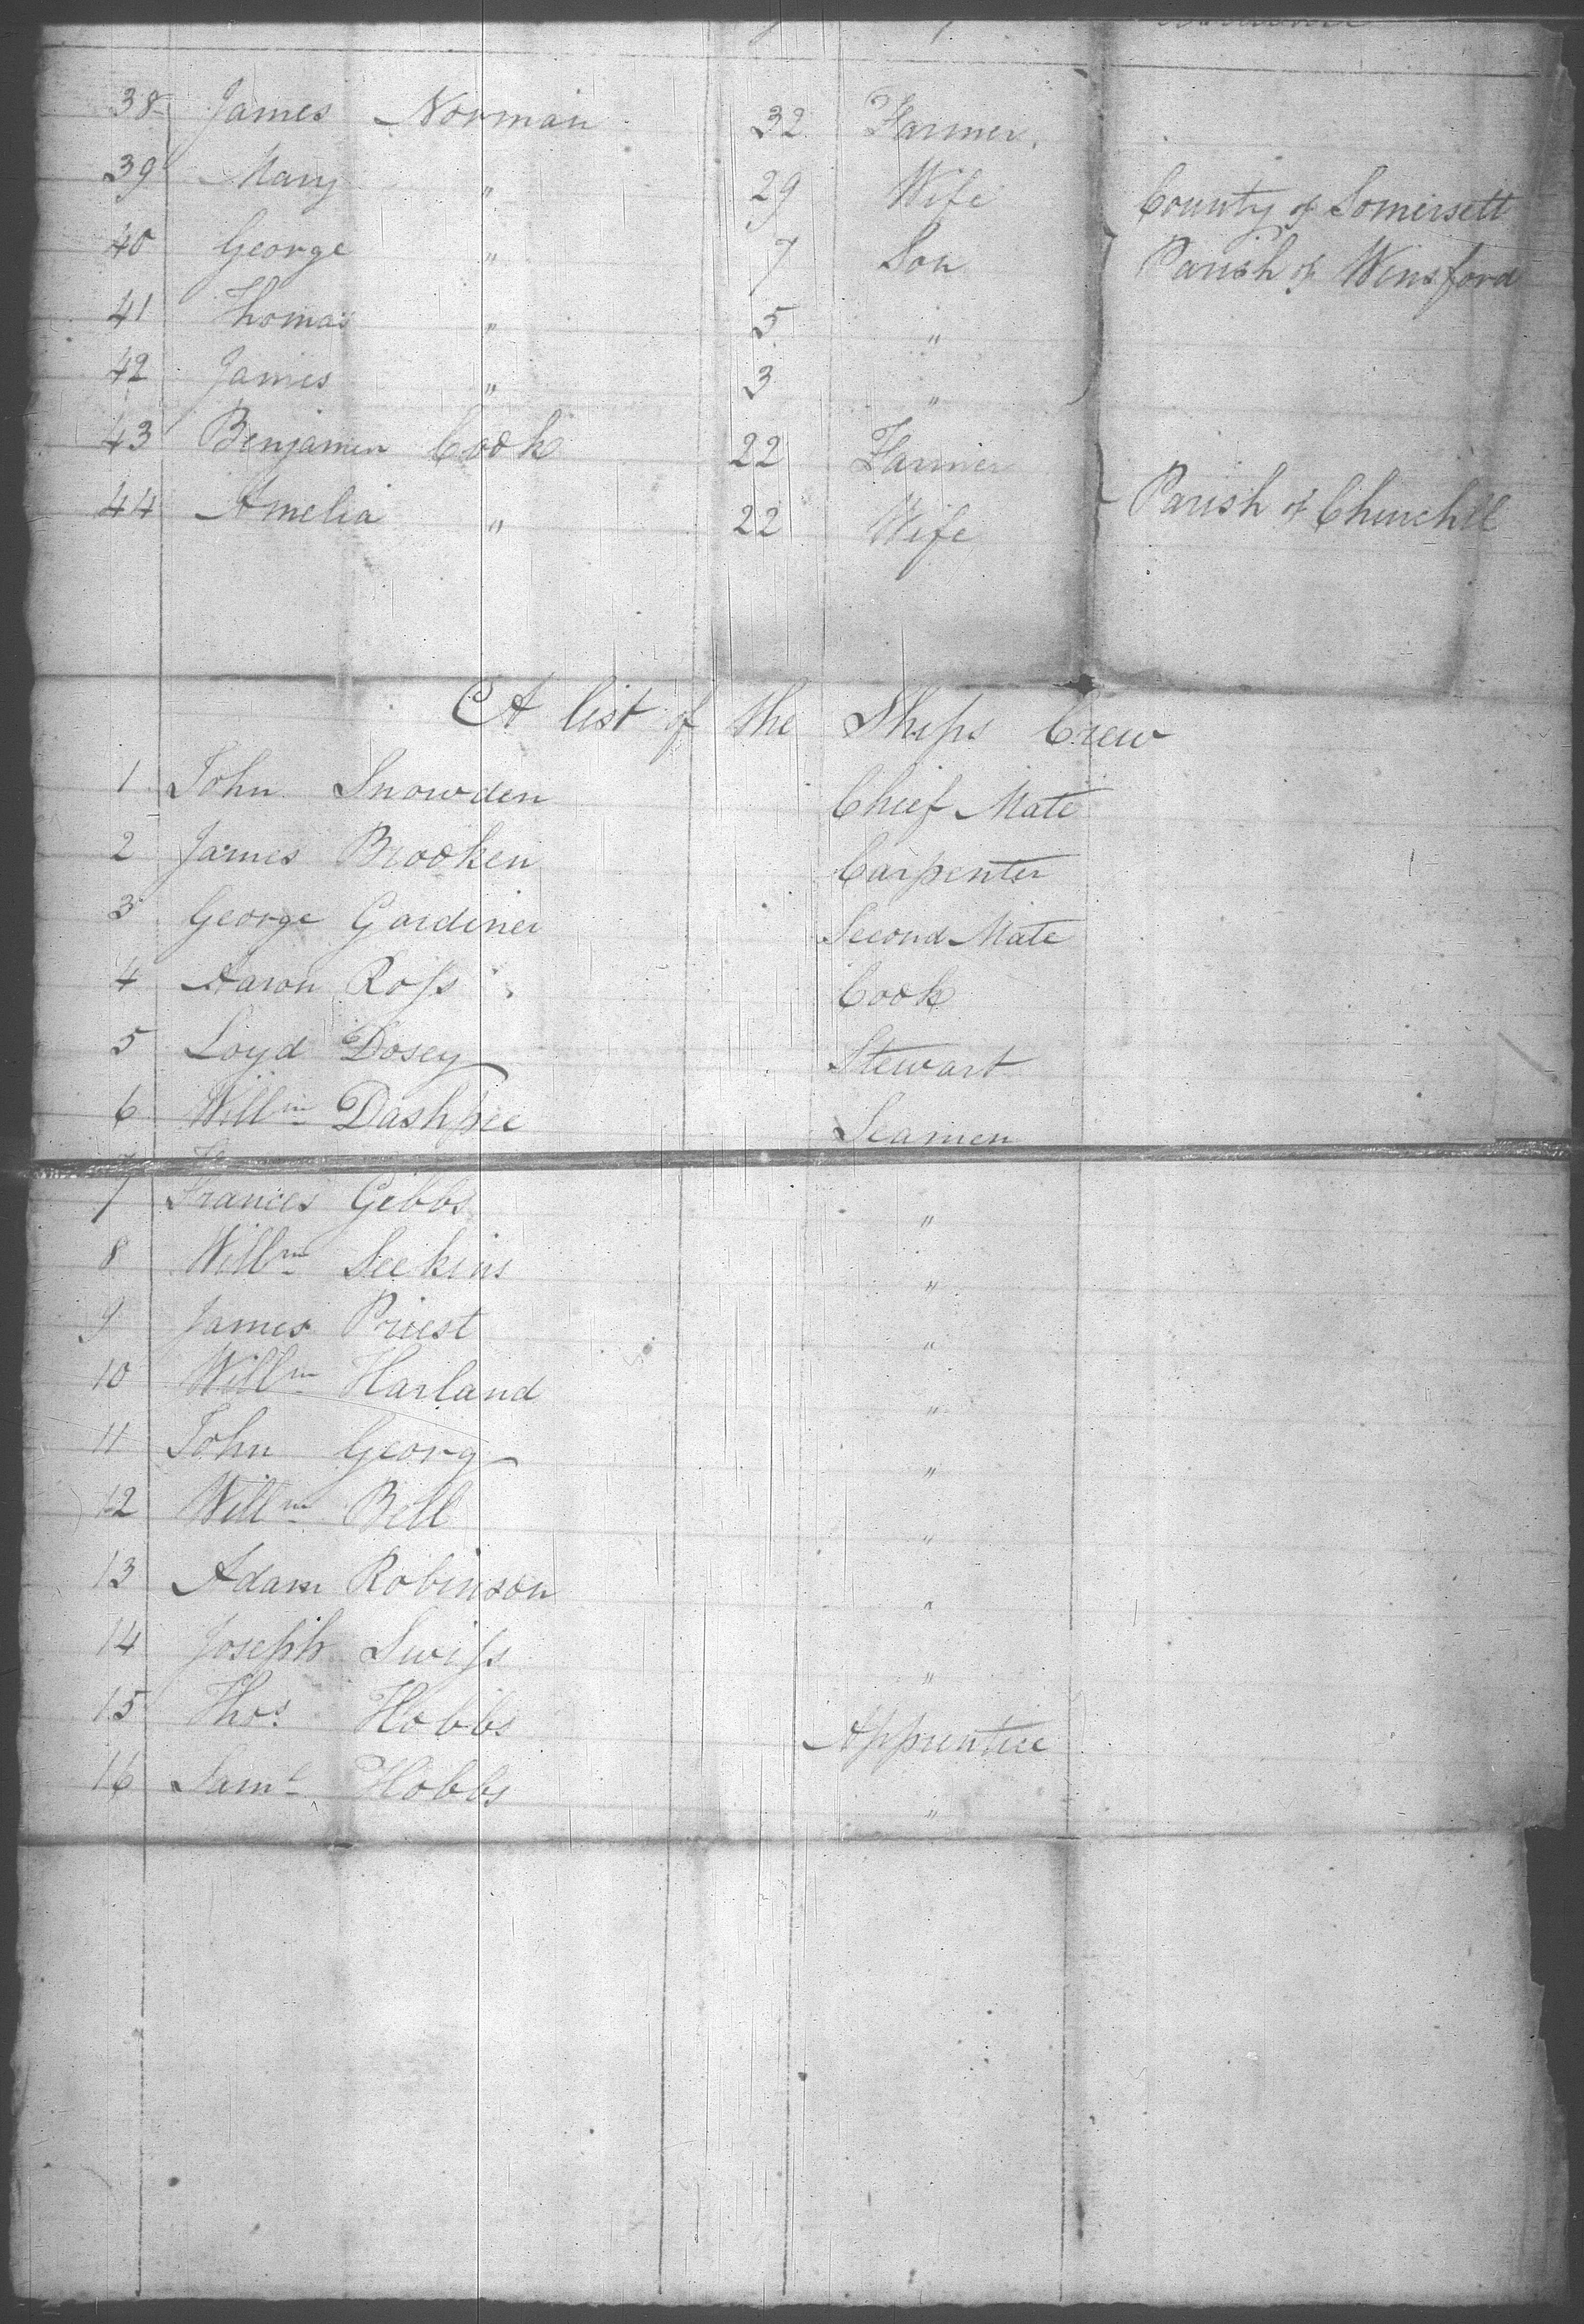 38 James Norman 32 Farmer
39 Mary " 29 Wife County of Somersett
40 George " 7 Son Parish of Winsford
41 Thomas " 5 "
42 James " 3 "
43 Benjamin Cook 22 Farmer
44 Amelia " 22 Wife Parish of Churchill
A list of the Ships Crew
1 John Snowden Chief Mate
2 James Brooken Carpenter
3 George Gardiner Second Mate
4 Aaron Ross Cook
5 Loyd Dosey Stewart
6 Willm Dashpee Seamen
7 Frances Gibbs "
8 Willm Seekins "
9 James Priest "
10 Willm Harland "
11 John Georg "
12 Willm Bell "
13 Adam Robinson "
14 Joseph Swiss "
15 Thos. Hobbs Apprentice
16 Saml Hobbs "